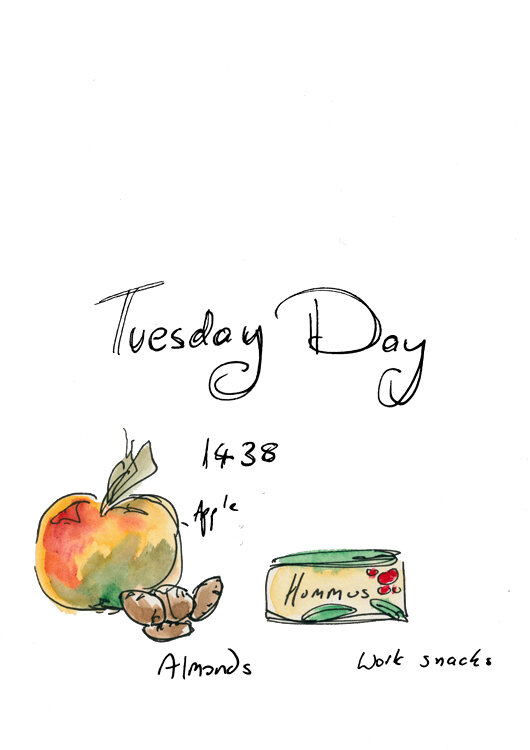 Tuesday Day
1438
Apple
Hommus
Almonds
Work snacks